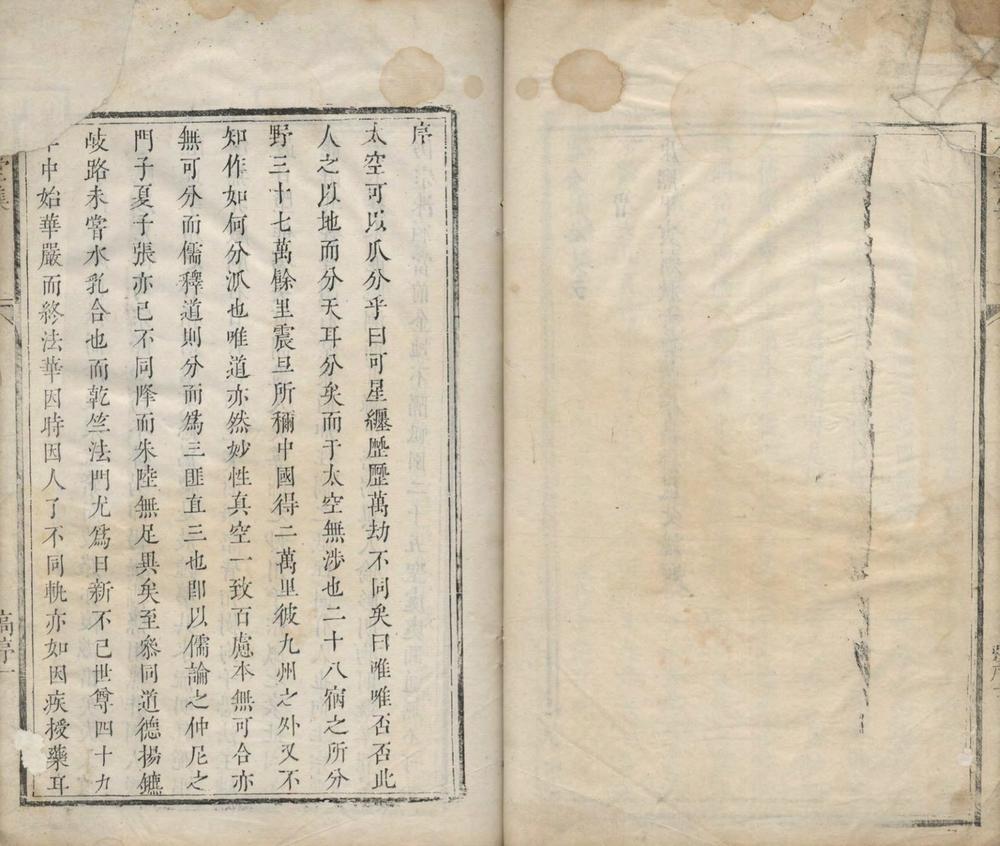 序
太空可以瓜分乎曰可星纏歷歷萬劫不同矣曰唯唯否否此
人之以地而分天耳分矣而于太空無涉也二十八宿之所分
野三十七萬餘里震旦所稱中國得二萬里彼九州之外又不
知作如何分派也唯道亦然妙性真空一致百慮本無可合亦
無可分而儒釋道則分而爲三匪直三也即以儒論之仲尼之
門子夏子張亦已不同降而朱陸無足異矣至參同道德揚鑣
岐路未嘗水乳合也而乾竺法門尤爲日新不已世尊四十九
年中始華嚴而終法華因時因人了不同軌亦如因疾授藥耳
堂集
稿序一